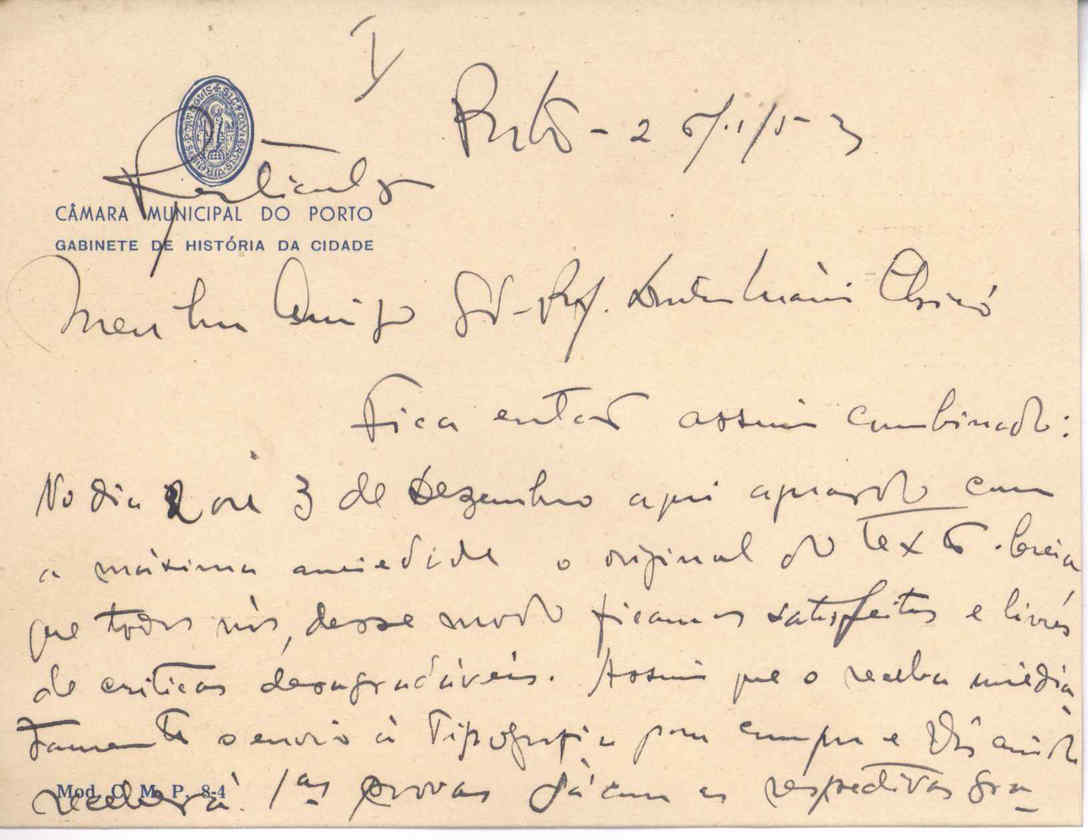 V
Porto - 26/11/53
Particular
CÂMARA MUNICIPAL DO PORTO
GABINETE DE HISTÓRIA DA CIDADE
Meu bom Amigo Sr. Prof. Doutor Mário Chicó
Fica então assim combinado:
No dia 2 ou 3 de Dezembro aqui aguardo com
a máxima ansiedade o original do texto. Creia
que todos nós, desse modo ficamos satisfeitos e livres
de críticas desagradáveis. Assim que o receba imedia-
tamente o envio à Tipografia para compor e
receberá 1as provas já com as respectivas gra-
Mod. C. M. P. 8-4